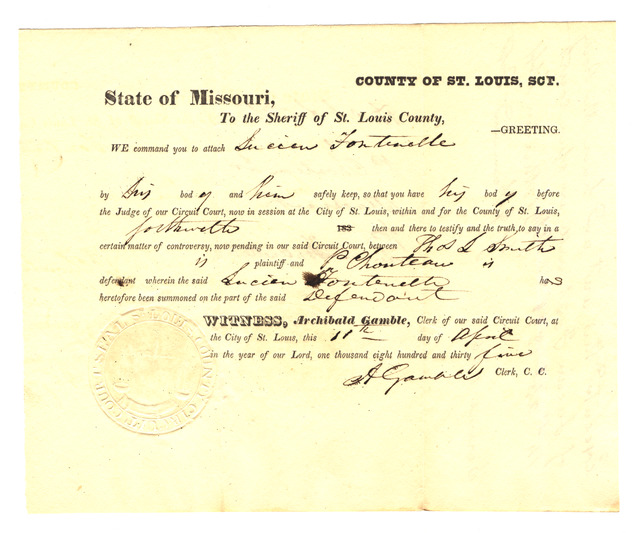 COUNTY OF ST. LOUIS, SCT.
State of Missouri,
To the Sheriff of St. Louis County,
—GREETING.
WE command you to attach Lucien Fontenelle
by his body and him safely keep, so that you have his body before
the Judge of our Circuit Court, now in session at the City of St. Louis, within and for the County of St. Louis,
forthwith 183 then and there to testify and the truth, to say in a
certain matter of controversy, now pending in our said Circuit Court, between Thos L Smith
is plaintiff and P Chouteau is
defendant wherein the said Lucien Fontenelle has
heretofore been summoned on the part of the said Defendant
WITNESS, Archibald Gamble, Clerk of our said Circuit Court, at
the City of St. Louis, this 11th day of April
in the year of our Lord, one thousand eight hundred and thirty five
A Gamble Clerk, C. C.